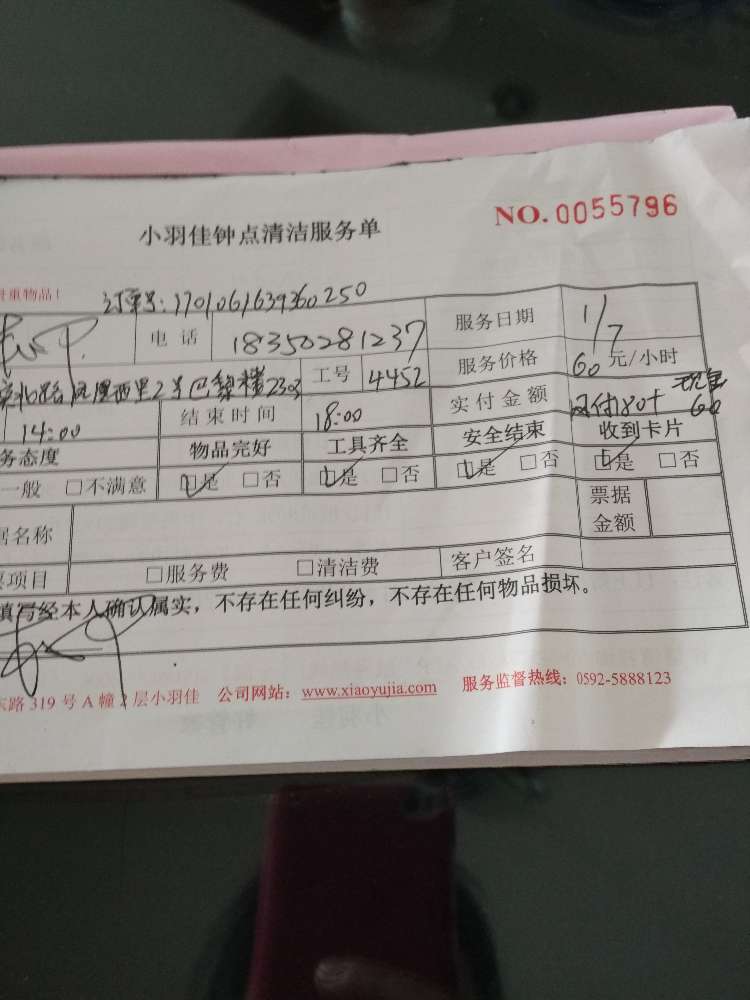 NO. 0055796
小羽佳钟点清洁服务单
重物品！ 订单号：1701061639360250
电话 18350281237 服务日期 1/7
北路凤里西里2号巴黎楼2303 工号 4452 服务价格 60 元/小时
14:00 结束时间 18:00 实付金额 网付180+现金60
务态度 物品完好 工具齐全 安全结束 收到卡片
一般 □不满意 ☑是 □否 ☑是 □否 ☑是 □否 ☑是 □否
名称 票据金额
项目 □服务费 □清洁费 客户签名
填写经本人确认属实，不存在任何纠纷，不存在任何物品损坏。
东路 319 号 A 幢 2 层小羽佳 公司网站：www.xiaoyujia.com 服务监督热线：0592-5888123